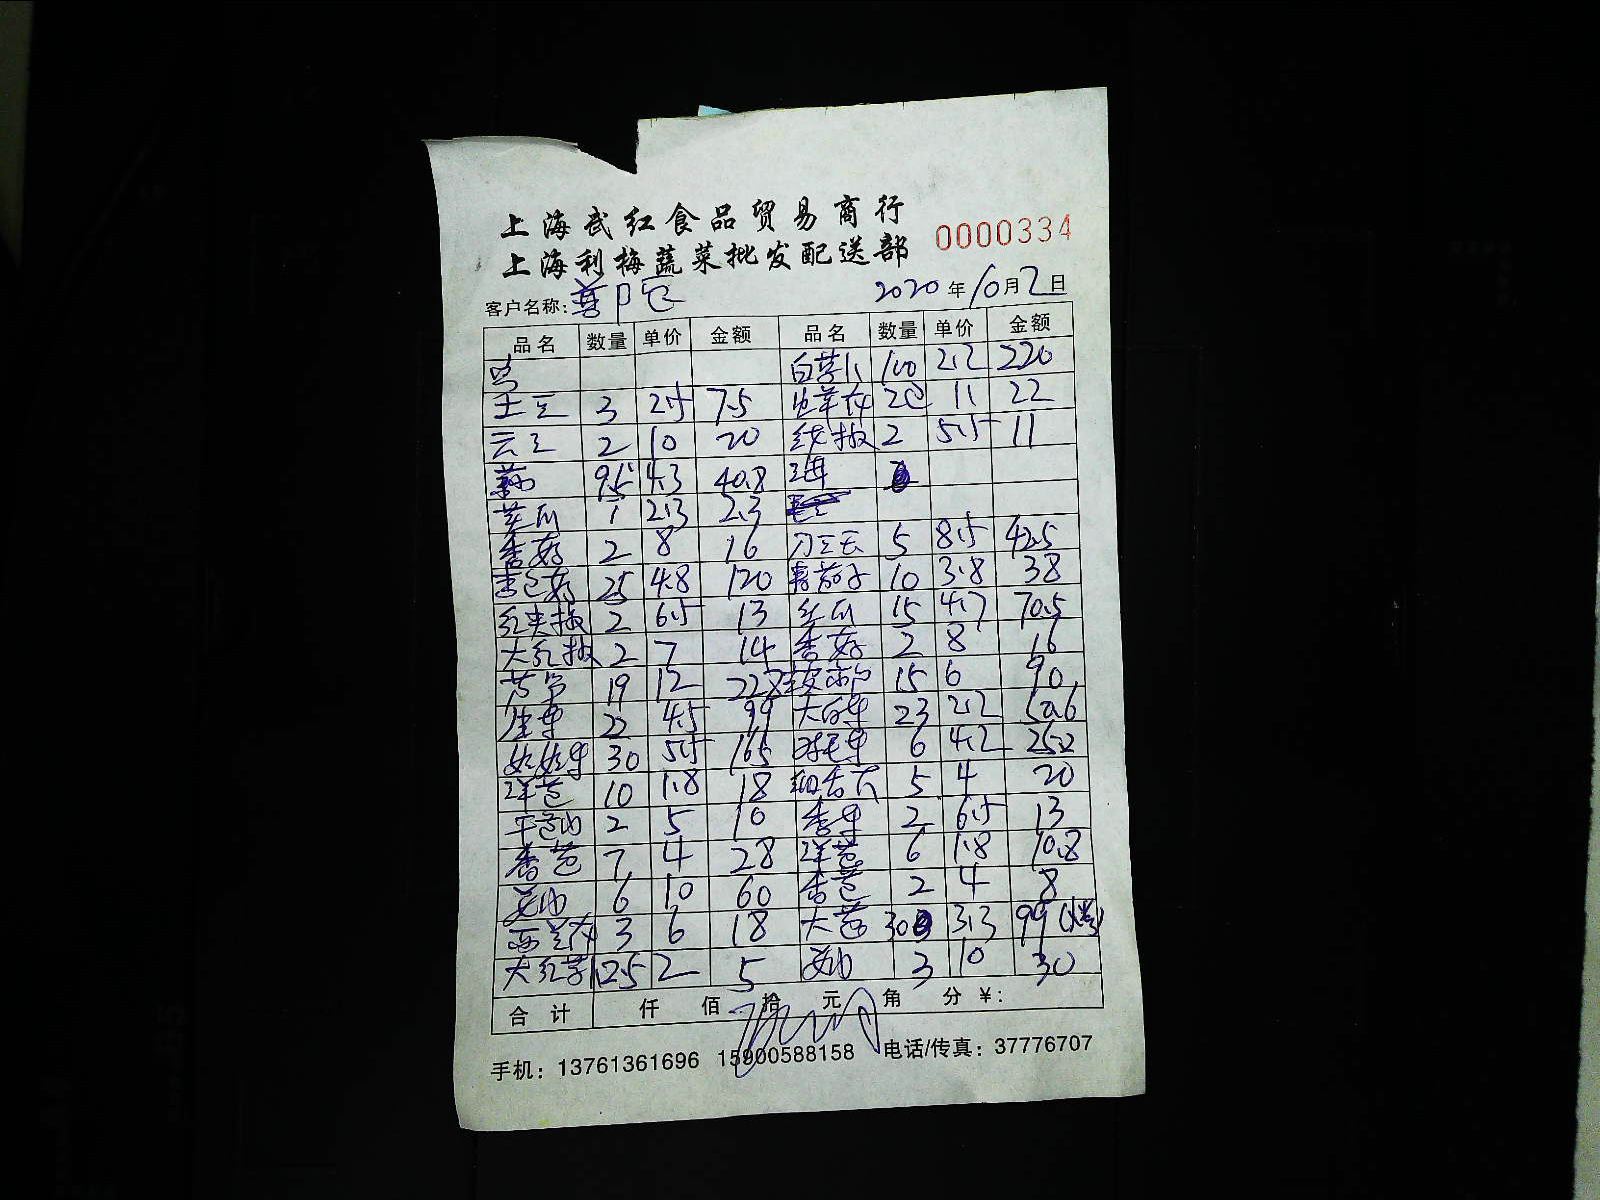 上海武红食品贸易商行
上海利梅蔬菜批发配送部 0000334
客户名称: 2020年10月2日
品名 数量 单价 金额 品名 数量 单价 金额
100 2.2 220
土豆 3 2.5 7.5 2 11 22
云豆 2 10 20 线椒 2 5.5 11
9.5 4.3 40.8
1 2.3 2.3
香菇 2 8 16 刀豆 5 8.5 42.5
25 4.8 120 茄子 10 3.8 38
红尖椒 2 6.5 13 丝瓜 15 4.7 70.5
大红椒 2 7 14 香菇 2 8 16
19 12 228 15 6 90
生菜 22 4.5 99 大白菜 23 2.2 50.6
30 5.5 165 6 4.2 25.2
洋葱 10 1.8 18 5 4 20
2 5 10 香菜 2 6.5 13
香葱 7 4 28 洋葱 6 1.8 10.8
6 10 60 香葱 2 4 8
西兰花 3 6 18 大葱 30 3.3 99
大红 2.5 2 5 3 10 30
合计 仟 佰 拾 元 角 分 ¥:
手机: 13761361696 15900588158 电话/传真: 37776707